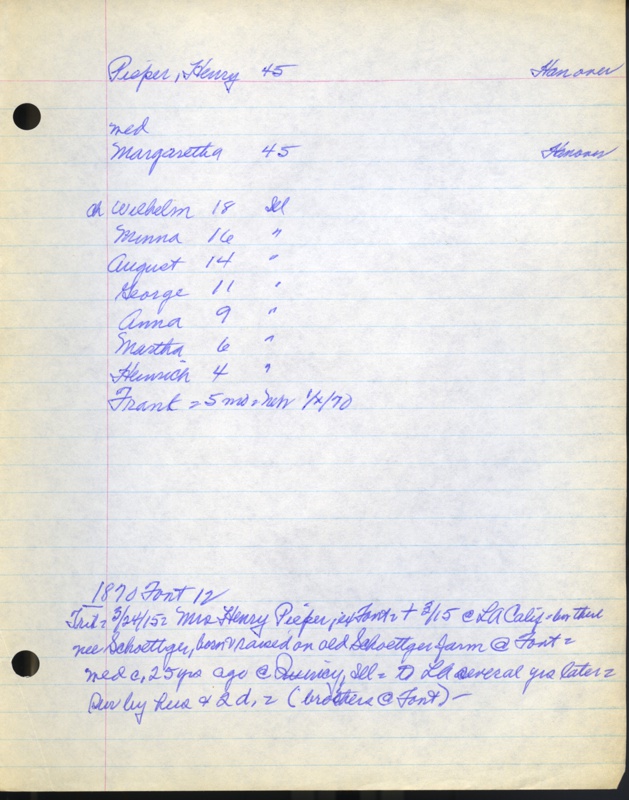 Pieper, Henry 45 Hanover
med
Margaretha 45 Hanover
ch Wilhelm 18 Ill
Minna 16 "
August 14 "
George 11 "
Anna 9 "
Martha 6 "
Heinrich 4 "
Frank = 5 mo = Nebr 1/x/70
1870 Font 12
Trib = 3/24/15 = Mrs Henry Pieper, ex Font = + 3/15 @ LA Calif =
nee Schoettger, born & raised on old Schoettger farm @ Font =
med c, 25 yrs ago @ Quincy, Ill = to LA several yrs later =
Sur by hus & 2 d, = (brothers @ Font) –